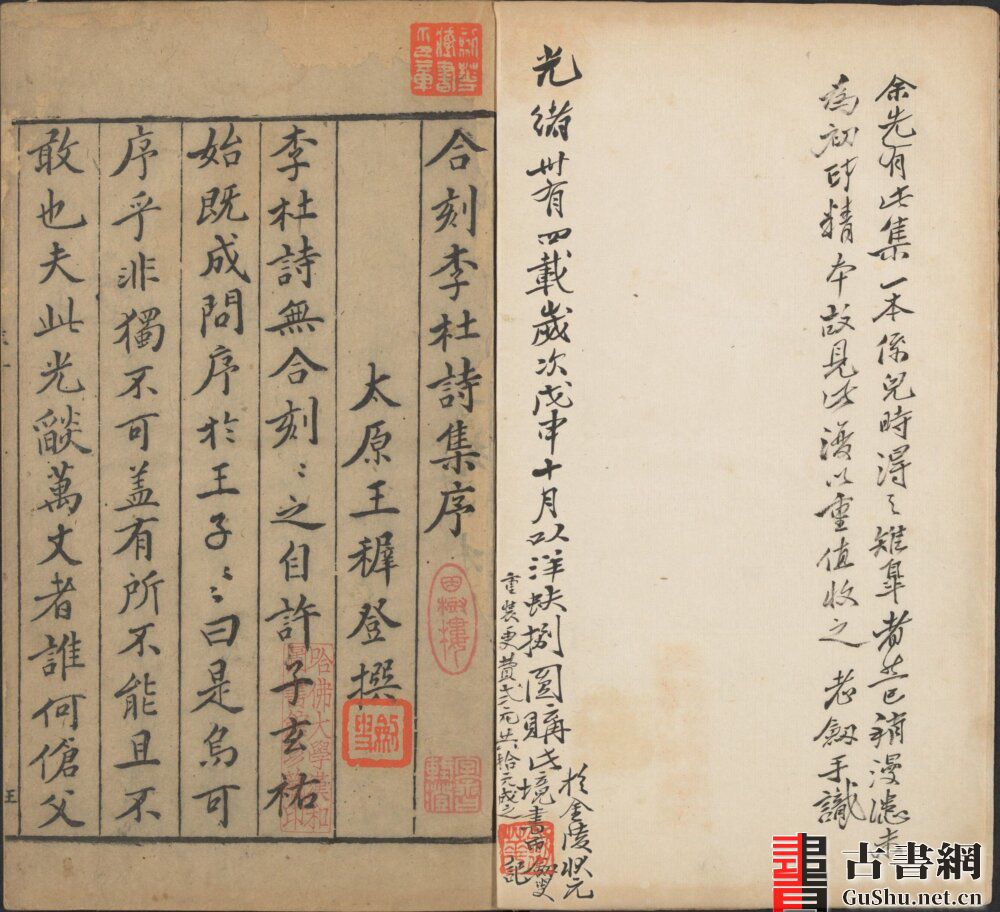 余先有此集一本係兒時得之雖鼻者
為初印精本故見此復以重值收之 老劔手識
光緒卅有四載歲次戊申十月以洋蚨捌圓購
於金陵狀元
境書
記
重裝更費
合刻李杜詩集序
太原王穉登撰
李杜詩無合刻〻之自許子玄祐
始既成問序於王子〻曰是烏可
序乎非獨不可盖有所不能且不
敢也夫此光燄萬丈者誰何傖父
哈佛大學漢和
圖書館珍藏印
古書網
GuShu.net.cn